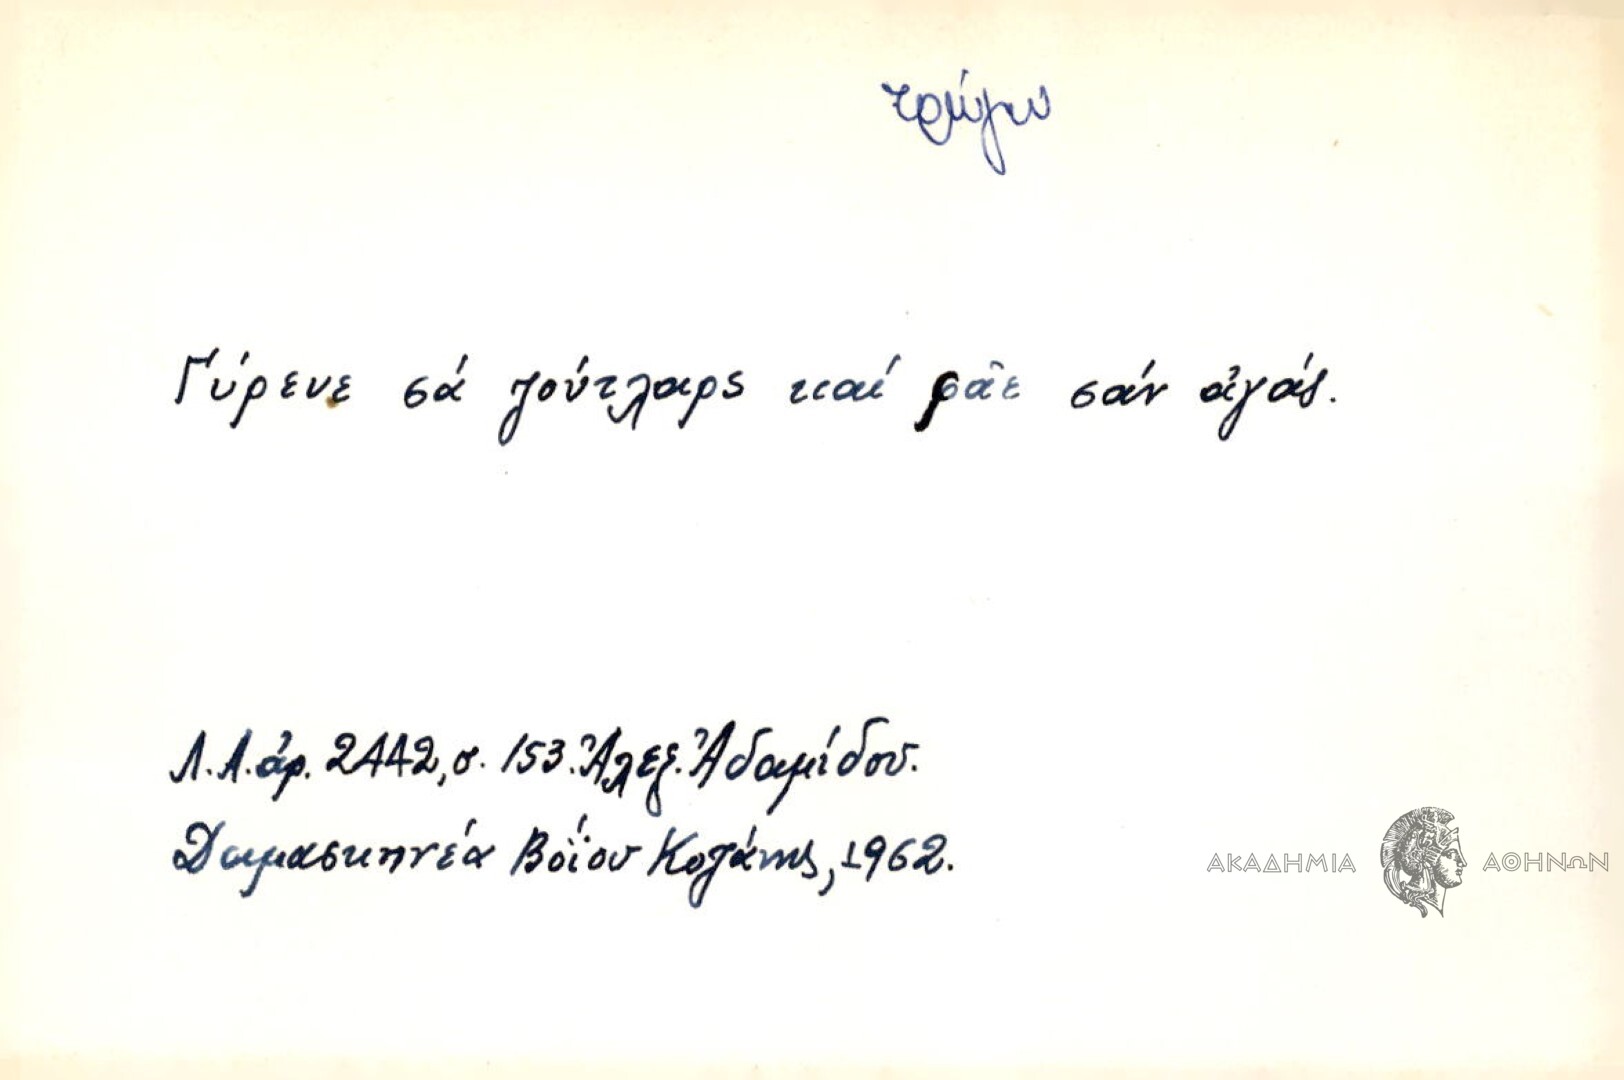 τρώγω
Γύρευε σά ζούτλαρς καί φᾶε σάν ἀγάς.
Λ.Α. ἀρ. 2442, σ. 153. Ἀλεξ. Ἀδαμίδου.
Δαμασκηνέα Βοΐου Κοζάνης, 1962.
ΑΚΑΔΗΜΙΑ ΑΘΗΝΩΝ